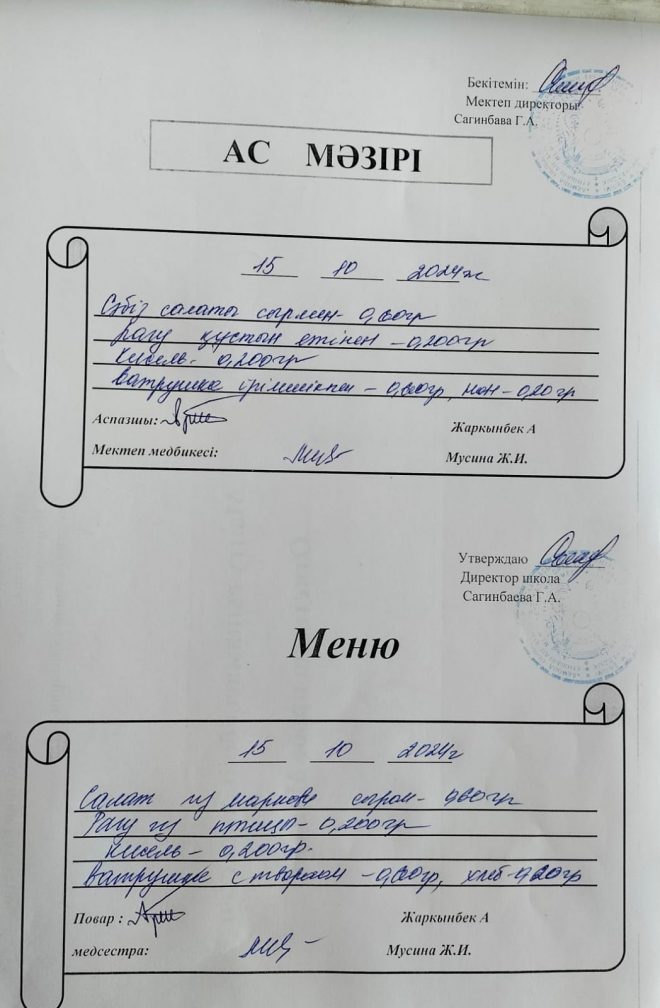 Бекітемін:
Мектеп директоры
Сагинбава Г.А.
АС МӘЗІРІ
15 10 2024ж
Сәбіз салаты сырмен - 0,60гр
рагу құстын етінен - 0,200гр
кисель - 0,200гр
ватрушка ірімшікпен - 0,60гр, нан - 0,20гр
Аспазшы: Жаркынбек А
Мектеп медбикесі: Мусина Ж.И.
Утверждаю
Директор школа
Сагинбаева Г.А.
Меню
15 10 2024г
Салат из маркови сыром - 060гр
Рагу из птицы - 0,200гр
кисель - 0,200гр.
ватрушка с творогом - 0,60гр, хлеб - 0,20гр
Повар : Жаркынбек А
медсестра: Мусина Ж.И.